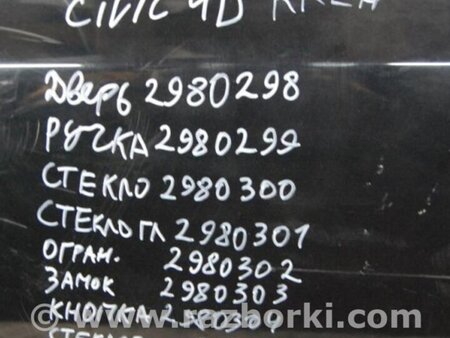 CIVIC 4D
Дверь 2980298
РУЧКА 2980299
СТЕКЛО 2980300
СТЕКЛО ГЛ 2980301
ОГРАН. 2980302
ЗАМОК 2980303
КНОПКА 2980304
www.razborki.com